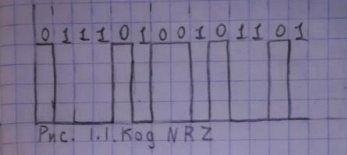 0 1 1 1 0 1 0 0 1 0 1 1 0 1
Рис. 1.1. Код NRZ